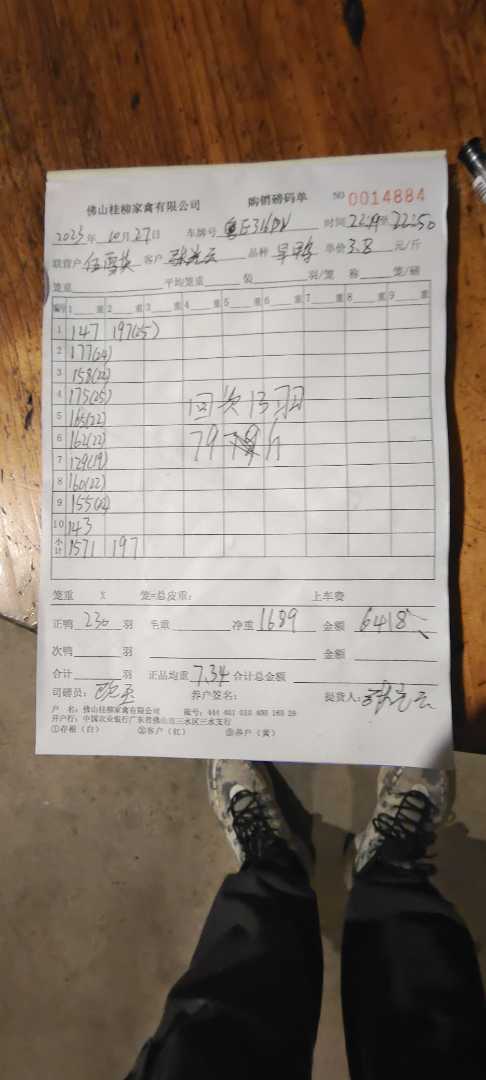 佛山桂柳家禽有限公司 购销磅码单 NO 0014884
2023年10月27日 车牌号 粤E316DV 时间 22:19至22:50
联营户 客户 张先云 品种 单价3.8元/斤
笼重 平均笼重 装 羽/笼 称 笼/磅
编号 1 重 2 重 3 重 4 重 5 重 6 重 7 重 8 重 9 重
1 147 197(25)
2 177(24)
3 158(22)
4 175(25) 回欠13羽
5 165(22)
6 162(22) 79
7 129(19)
8 160(22)
9 155(22)
10 143
小计 1571 197
笼重 X 笼=总皮重: 上车费
正鸭 230 羽 毛重 净重 1689 金额 6418
次鸭 羽 金额
合计 羽 正品均重 7.34 合计总金额
司磅员: 养户签名: 提货人: 张先云
户 名: 佛山桂柳家禽有限公司 账号: 444 401 010 400 163 29
开户行: 中国农业银行广东省佛山市三水区三水支行
①存根(白) ②客户(红) ③养户(黄)